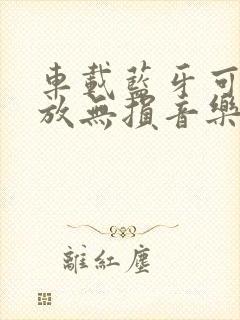 車載藍牙可
放無損音樂
離紅塵